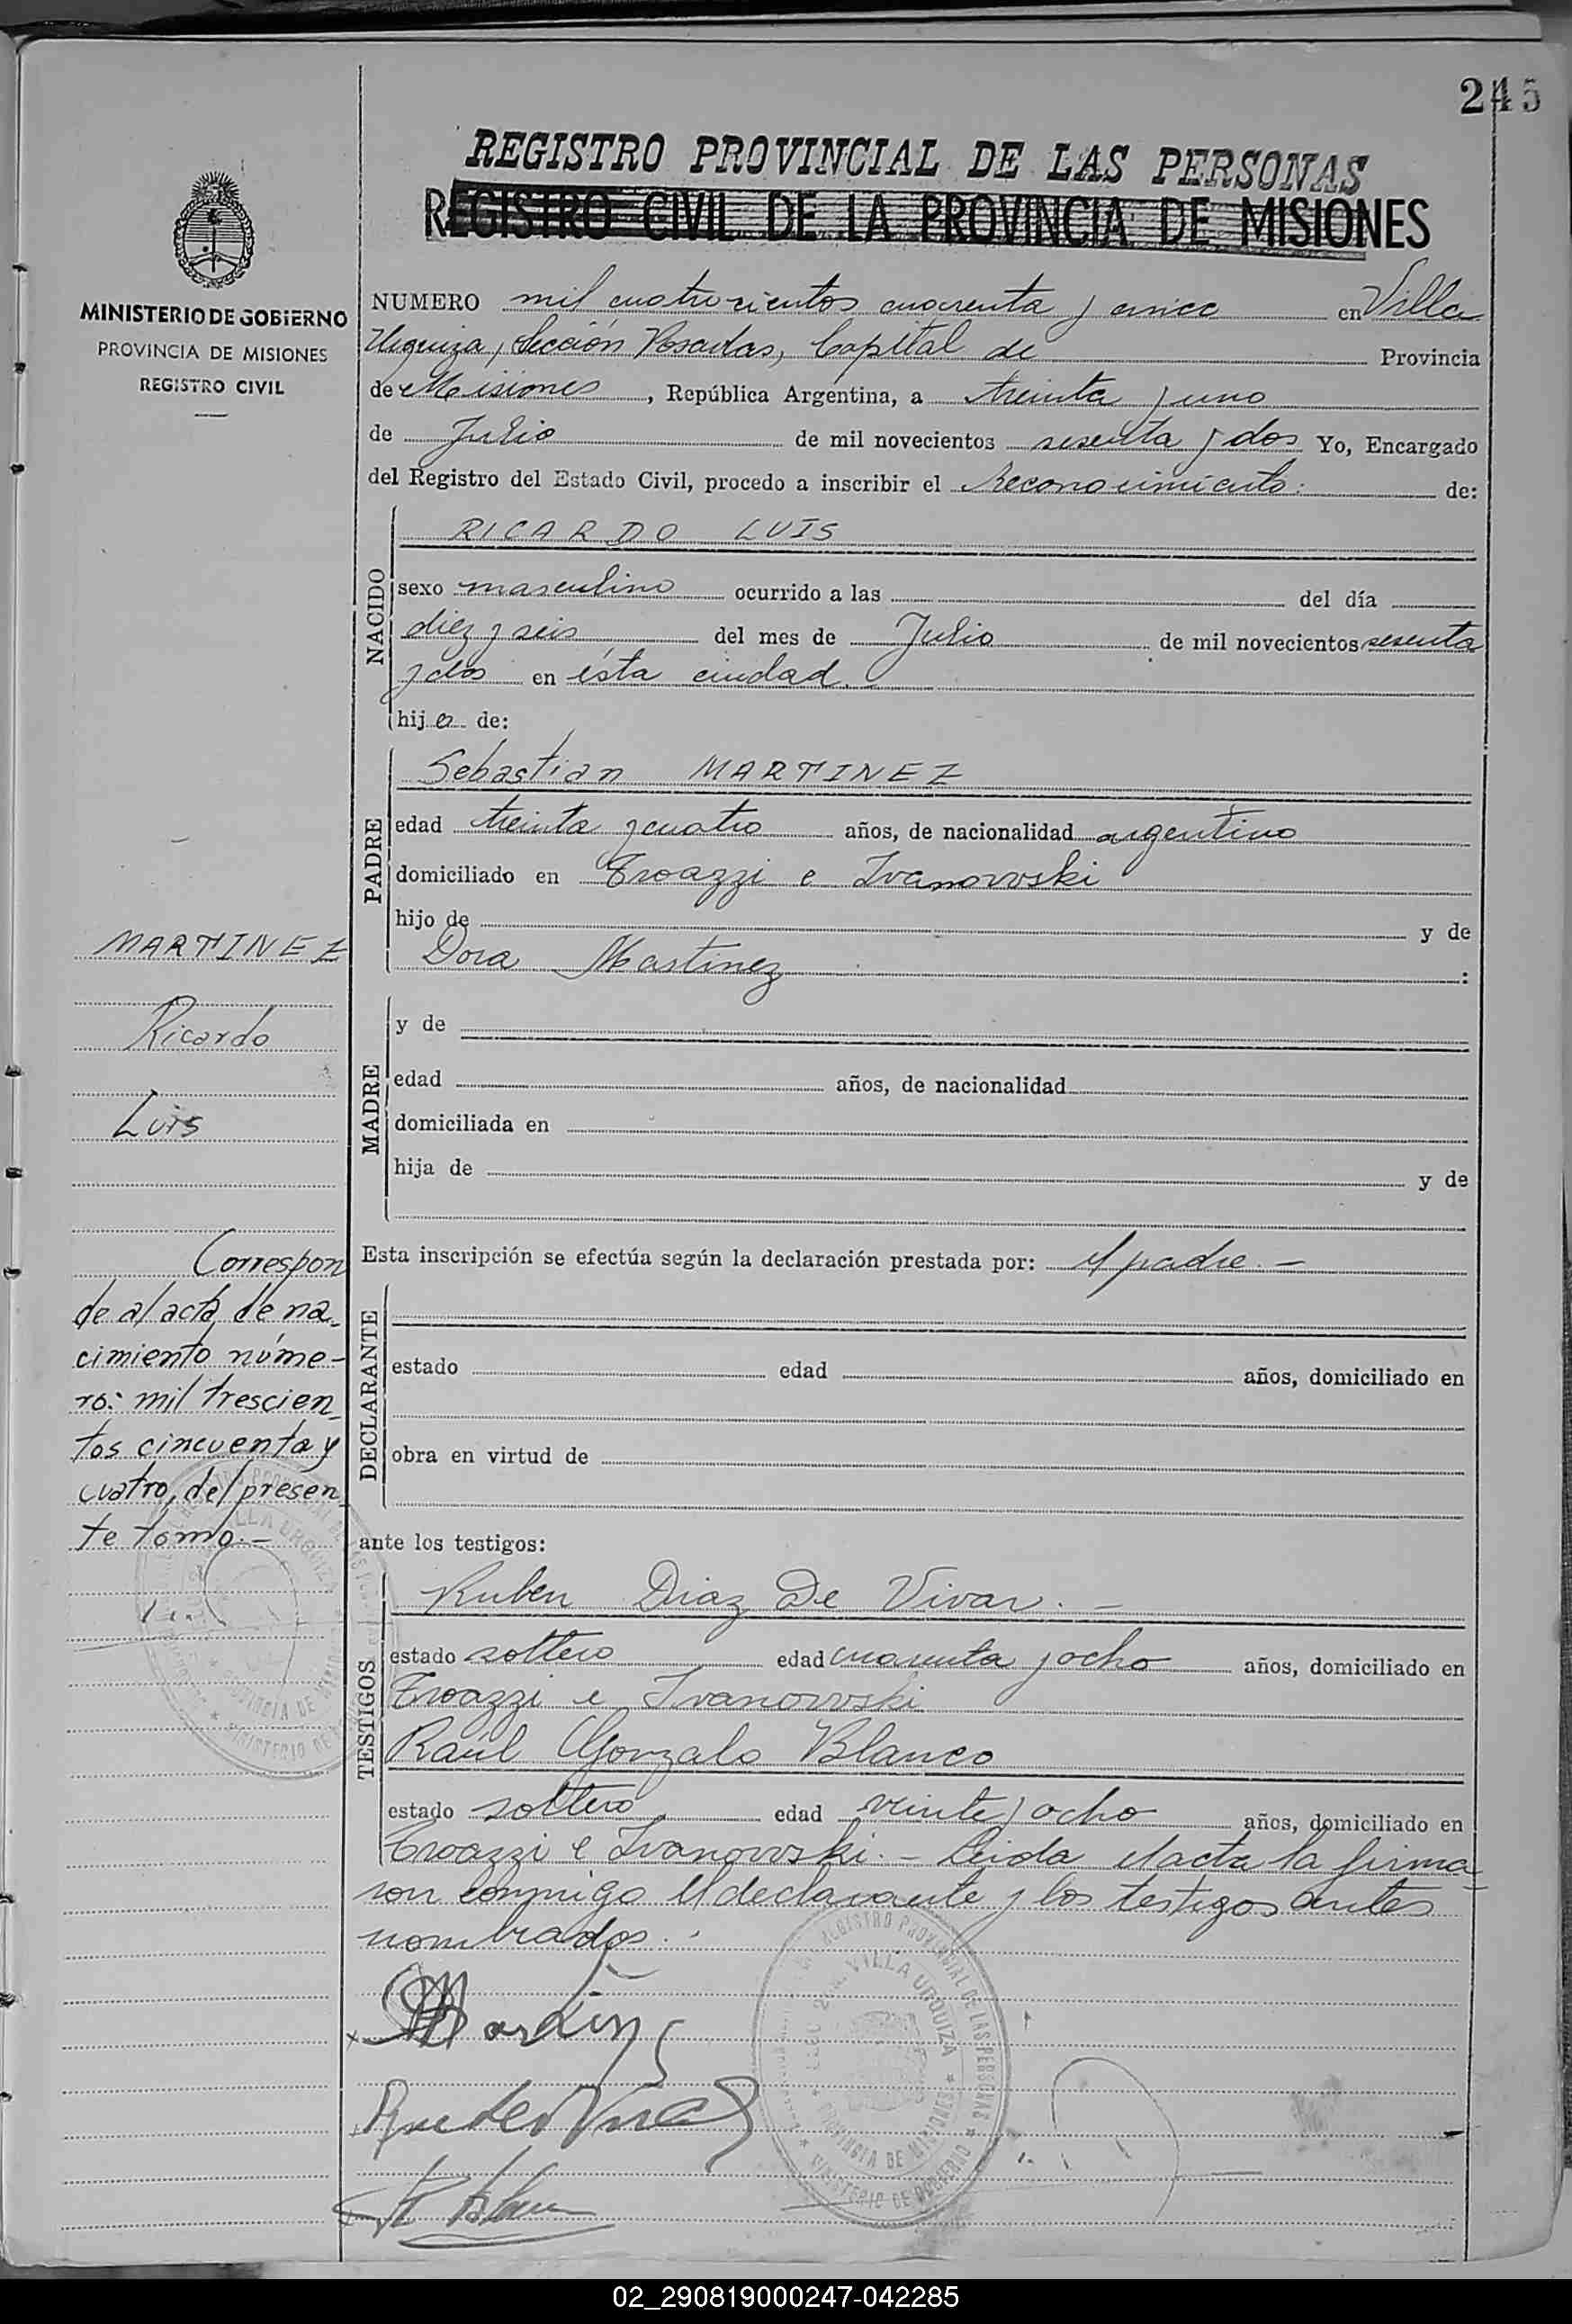 245
REGISTRO PROVINCIAL DE LAS PERSONAS
REGISTRO CIVIL DE LA PROVINCIA DE MISIONES
MINISTERIO DE GOBIERNO
PROVINCIA DE MISIONES
REGISTRO CIVIL
NUMERO mil cuatrocientos cuarenta y cinco en Villa
Urquiza, Sección Posadas, Capital de Provincia
de Misiones, República Argentina, a treinta y uno
de Julio de mil novecientos sesenta y dos Yo, Encargado
del Registro del Estado Civil, procedo a inscribir el Reconocimiento. de:
NACIDO
RICARDO LUIS
sexo masculino ocurrido a las del día
diez y seis del mes de Julio de mil novecientos sesenta
y dos en ésta ciudad.
hijo de:
PADRE
Sebastian MARTINEZ
edad treinta y cuatro años, de nacionalidad argentino
domiciliado en Troazzi e Ivanowski
hijo de y de
Dora Martinez :
MADRE
y de
edad años, de nacionalidad
domiciliada en
hija de y de
Esta inscripción se efectúa según la declaración prestada por: el padre. -
DECLARANTE
estado edad años, domiciliado en
obra en virtud de
ante los testigos:
TESTIGOS
Ruben Diaz De Vivar. -
estado soltero edad cuarenta y ocho años, domiciliado en
Troazzi e Ivanowski
Raúl Gonzalo Blanco
estado soltero edad veinte y ocho años, domiciliado en
Troazzi e Ivanowski. - Leida el acta la firma
ron conmigo el declarante y los testigos antes
nombrados.
MARTINEZ
Ricardo
Luis
Correspon
de al acta de na-
cimiento núme-
ro: mil trescien
tos cincuenta y
cuatro, del presen
te tomo. -
REGISTRO PROVINCIAL DE LAS PERSONAS
VILLA URQUIZA
PROVINCIA DE MISIONES
MINISTERIO DE GOBIERNO
02_290819000247-042285